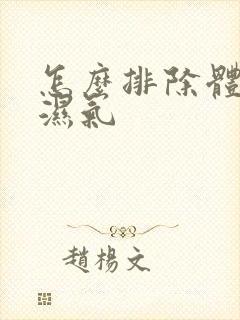 怎麼排除體
濕氣
趙楊文